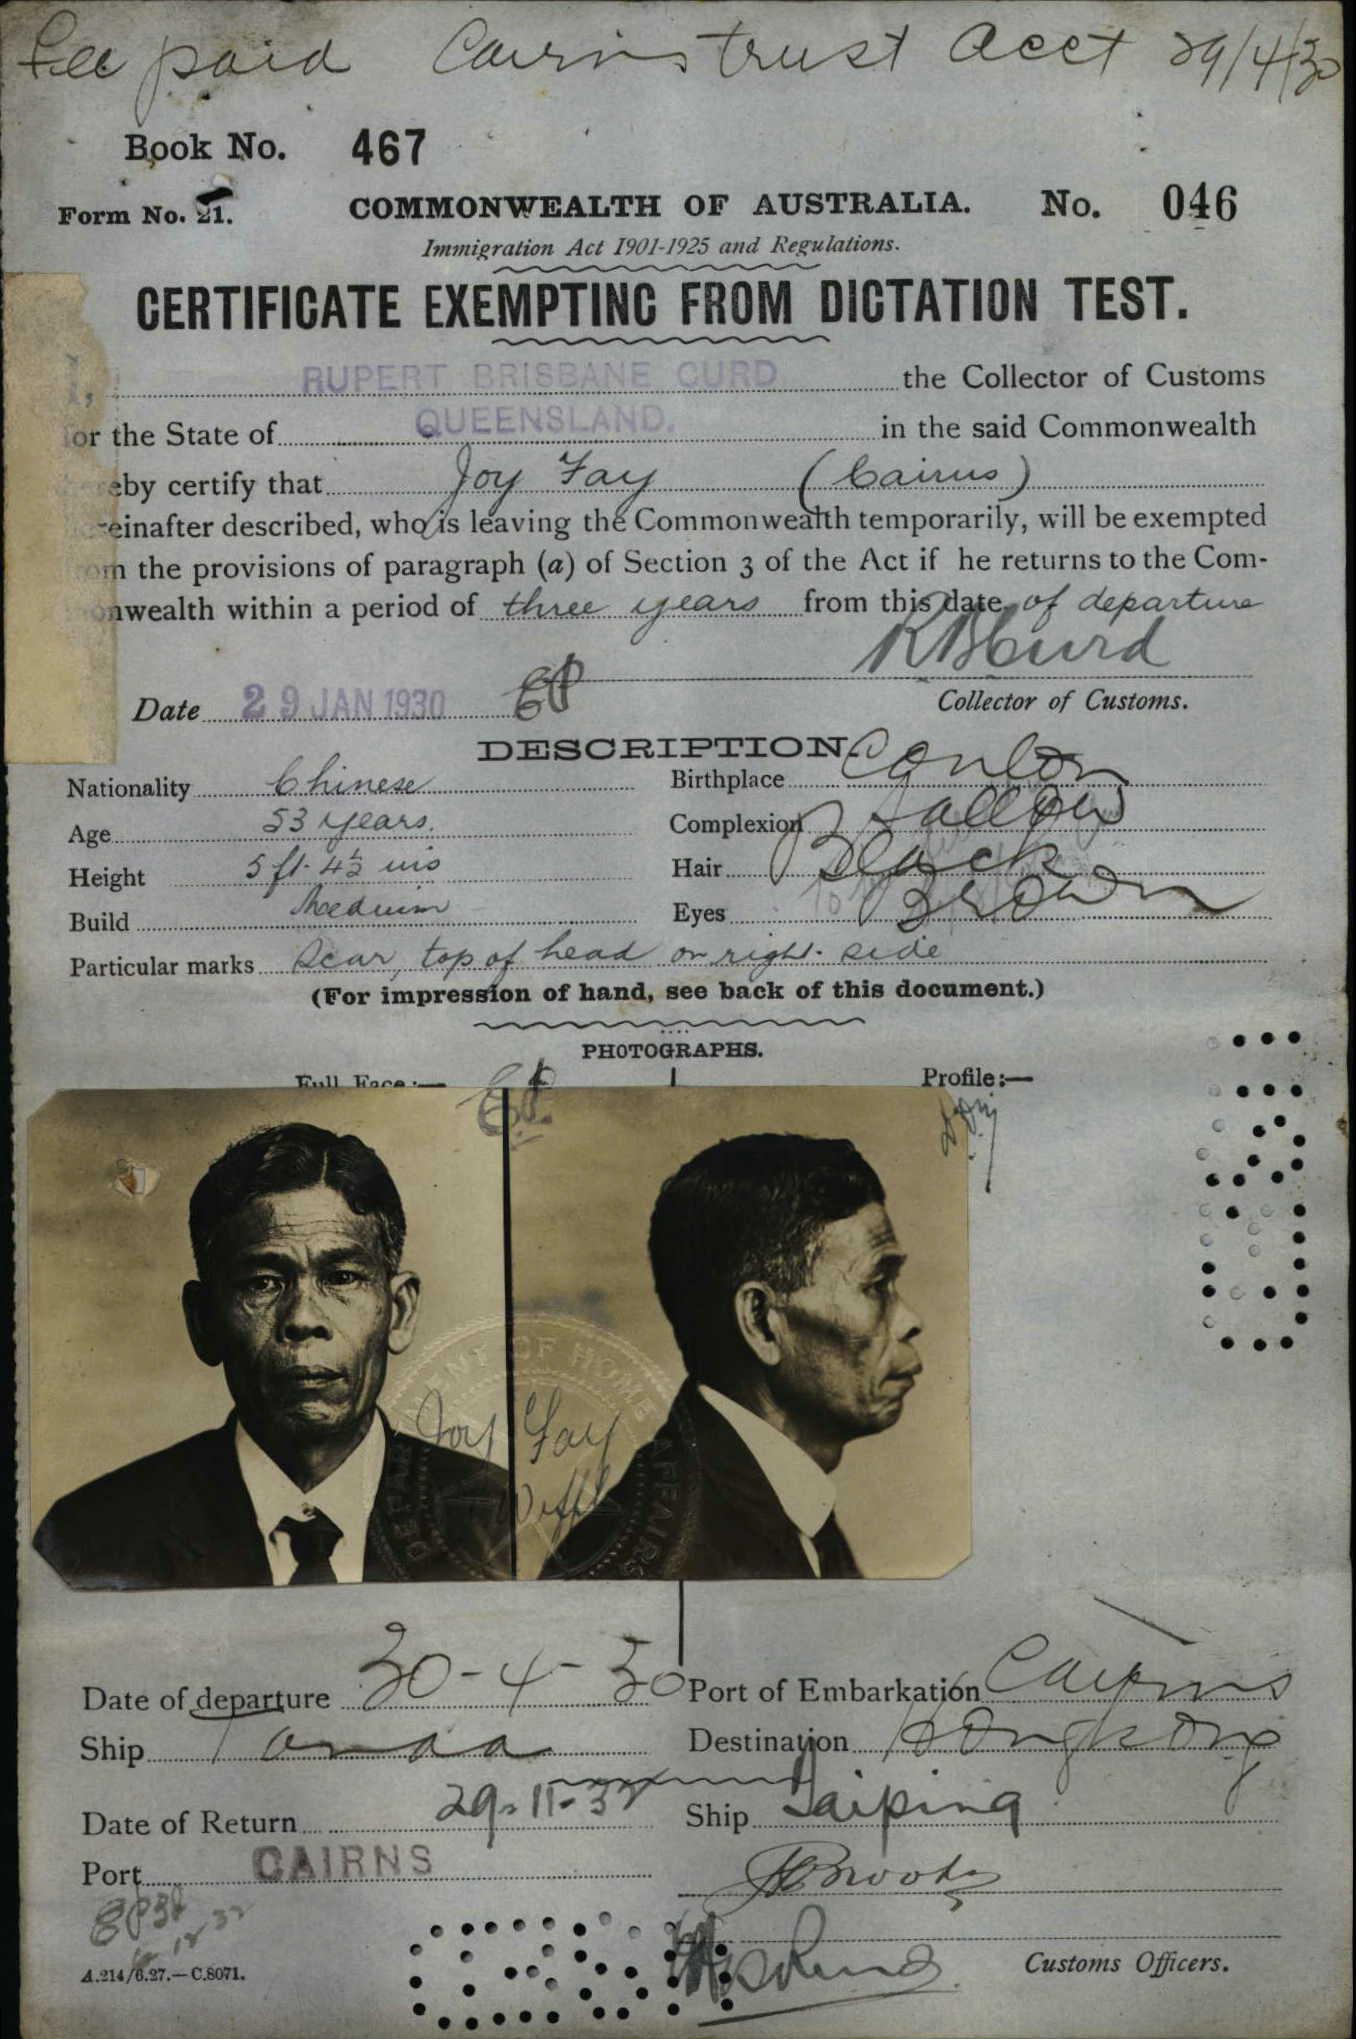 Fee paid Cairns trust Acct 29/4/30
Book No. 467
Form No. 21. COMMONWEALTH OF AUSTRALIA. No. 046
Immigration Act 1901-1925 and Regulations.
CERTIFICATE EXEMPTING FROM DICTATION TEST.
I, RUPERT BRISBANE CURD the Collector of Customs
for the State of QUEENSLAND. in the said Commonwealth
hereby certify that Joy Fay (Cairns)
hereinafter described, who is leaving the Commonwealth temporarily, will be exempted
from the provisions of paragraph (a) of Section 3 of the Act if he returns to the Com-
monwealth within a period of three years from this date of departure
R B Curd
Date 29 JAN 1930 Collector of Customs.
DESCRIPTION.
Nationality Chinese Birthplace Canton
Age 53 years. Complexion Sallow
Height 5 ft. 4½ ins Hair Black
Build Medium Eyes Brown
Particular marks Scar, top of head on right side
(For impression of hand, see back of this document.)
PHOTOGRAPHS.
Full Face:— Profile:—
DEPARTMENT OF HOME AFFAIRS
Joy Fay
Date of departure 30-4-30 Port of Embarkation Cairns
Ship Tanda Destination Hongkong
Date of Return 29-11-32 Ship Taiping
Port CAIRNS
Customs Officers.
A.214/6.27.—C.8071.